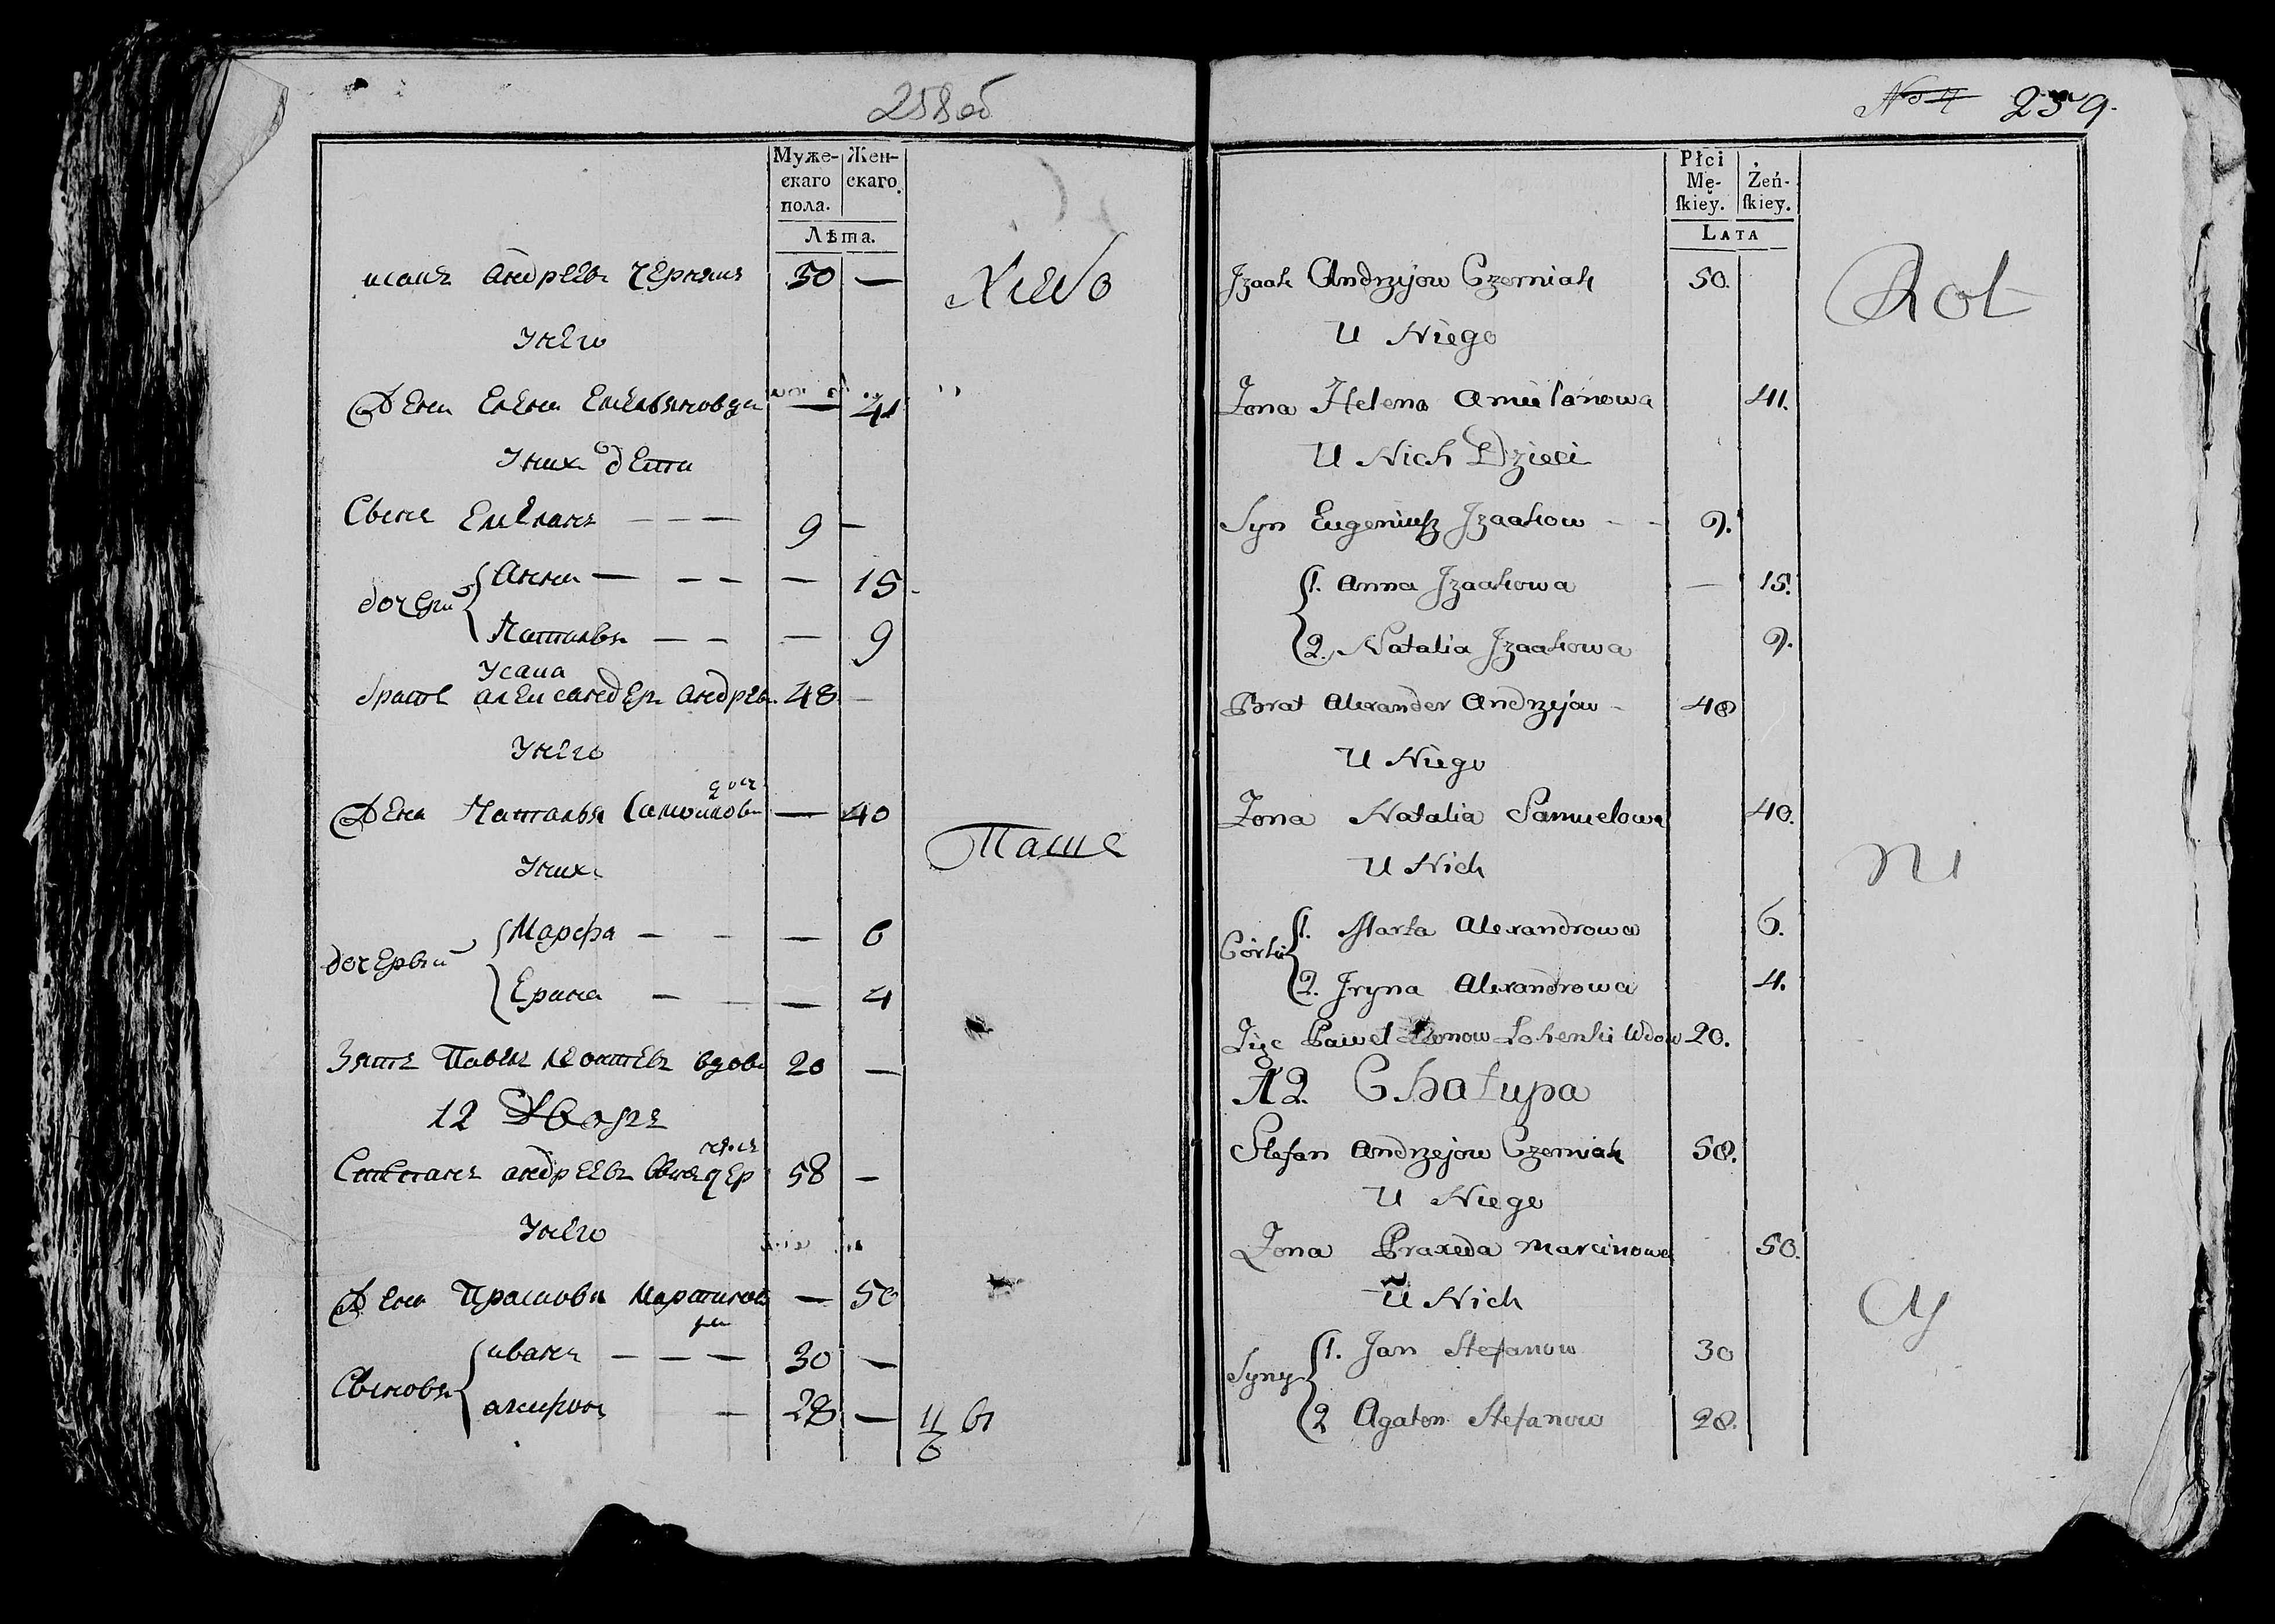 258об
Муже-
скаго
пола.
Жен-
скаго.
Лѣта.
исакъ андрѣевъ чернякъ 50 —
Хлебо
У него
Жена Елена Емельяновда — 41
У них дети
Сынъ Емелянъ — — — 9 —
дочери { Анна — — — — 15
Наталья — — — 9
Усака
братъ александеръ андрѣев 48 —
У него
дочъ
Жена Наталья Самойлов — 40
Паше
У них
дочерьи { Марфа — — — 6
Ерина — — — 4
Зять Павел вдовъ 20 —
12 Дворъ
Степанъ андрѣевъ чер 58 —
У него
Жена Прасковя Мартинов — 50
Сыновя { иванъ — — — 30 —
агафон — 28 —
11
6
No 4 259.
Płci
Mę-
ſkiey.
Żeń-
ſkiey.
LATA
Izaak Andrzejow Czerniak 50.
Rot
U Niego
Zona Helena Amilanowa 41.
U Nich Dzieci
Syn Eugeniusz Izaakow - - 9.
{ 1. Anna Izaakowa — 15.
2. Natalia Izaakowa 9.
Brat Alexander Andrzejow - 48
U Niego
Zona Natalia Samuelowa 40.
U Nich
ni
Córki { 1. Marta Alexandrowa 6.
2. Jryna Alexandrowa 4.
Zięc Paweł Leonow Wdow 20.
12. Chałupa
Stefan Andrzejow Czerniak 58.
U Niego
Zona Praxeda Marcinowa 50.
U Nich
cy
Syny { 1. Jan Stefanow 30
2 Agaton Stefanow 28.